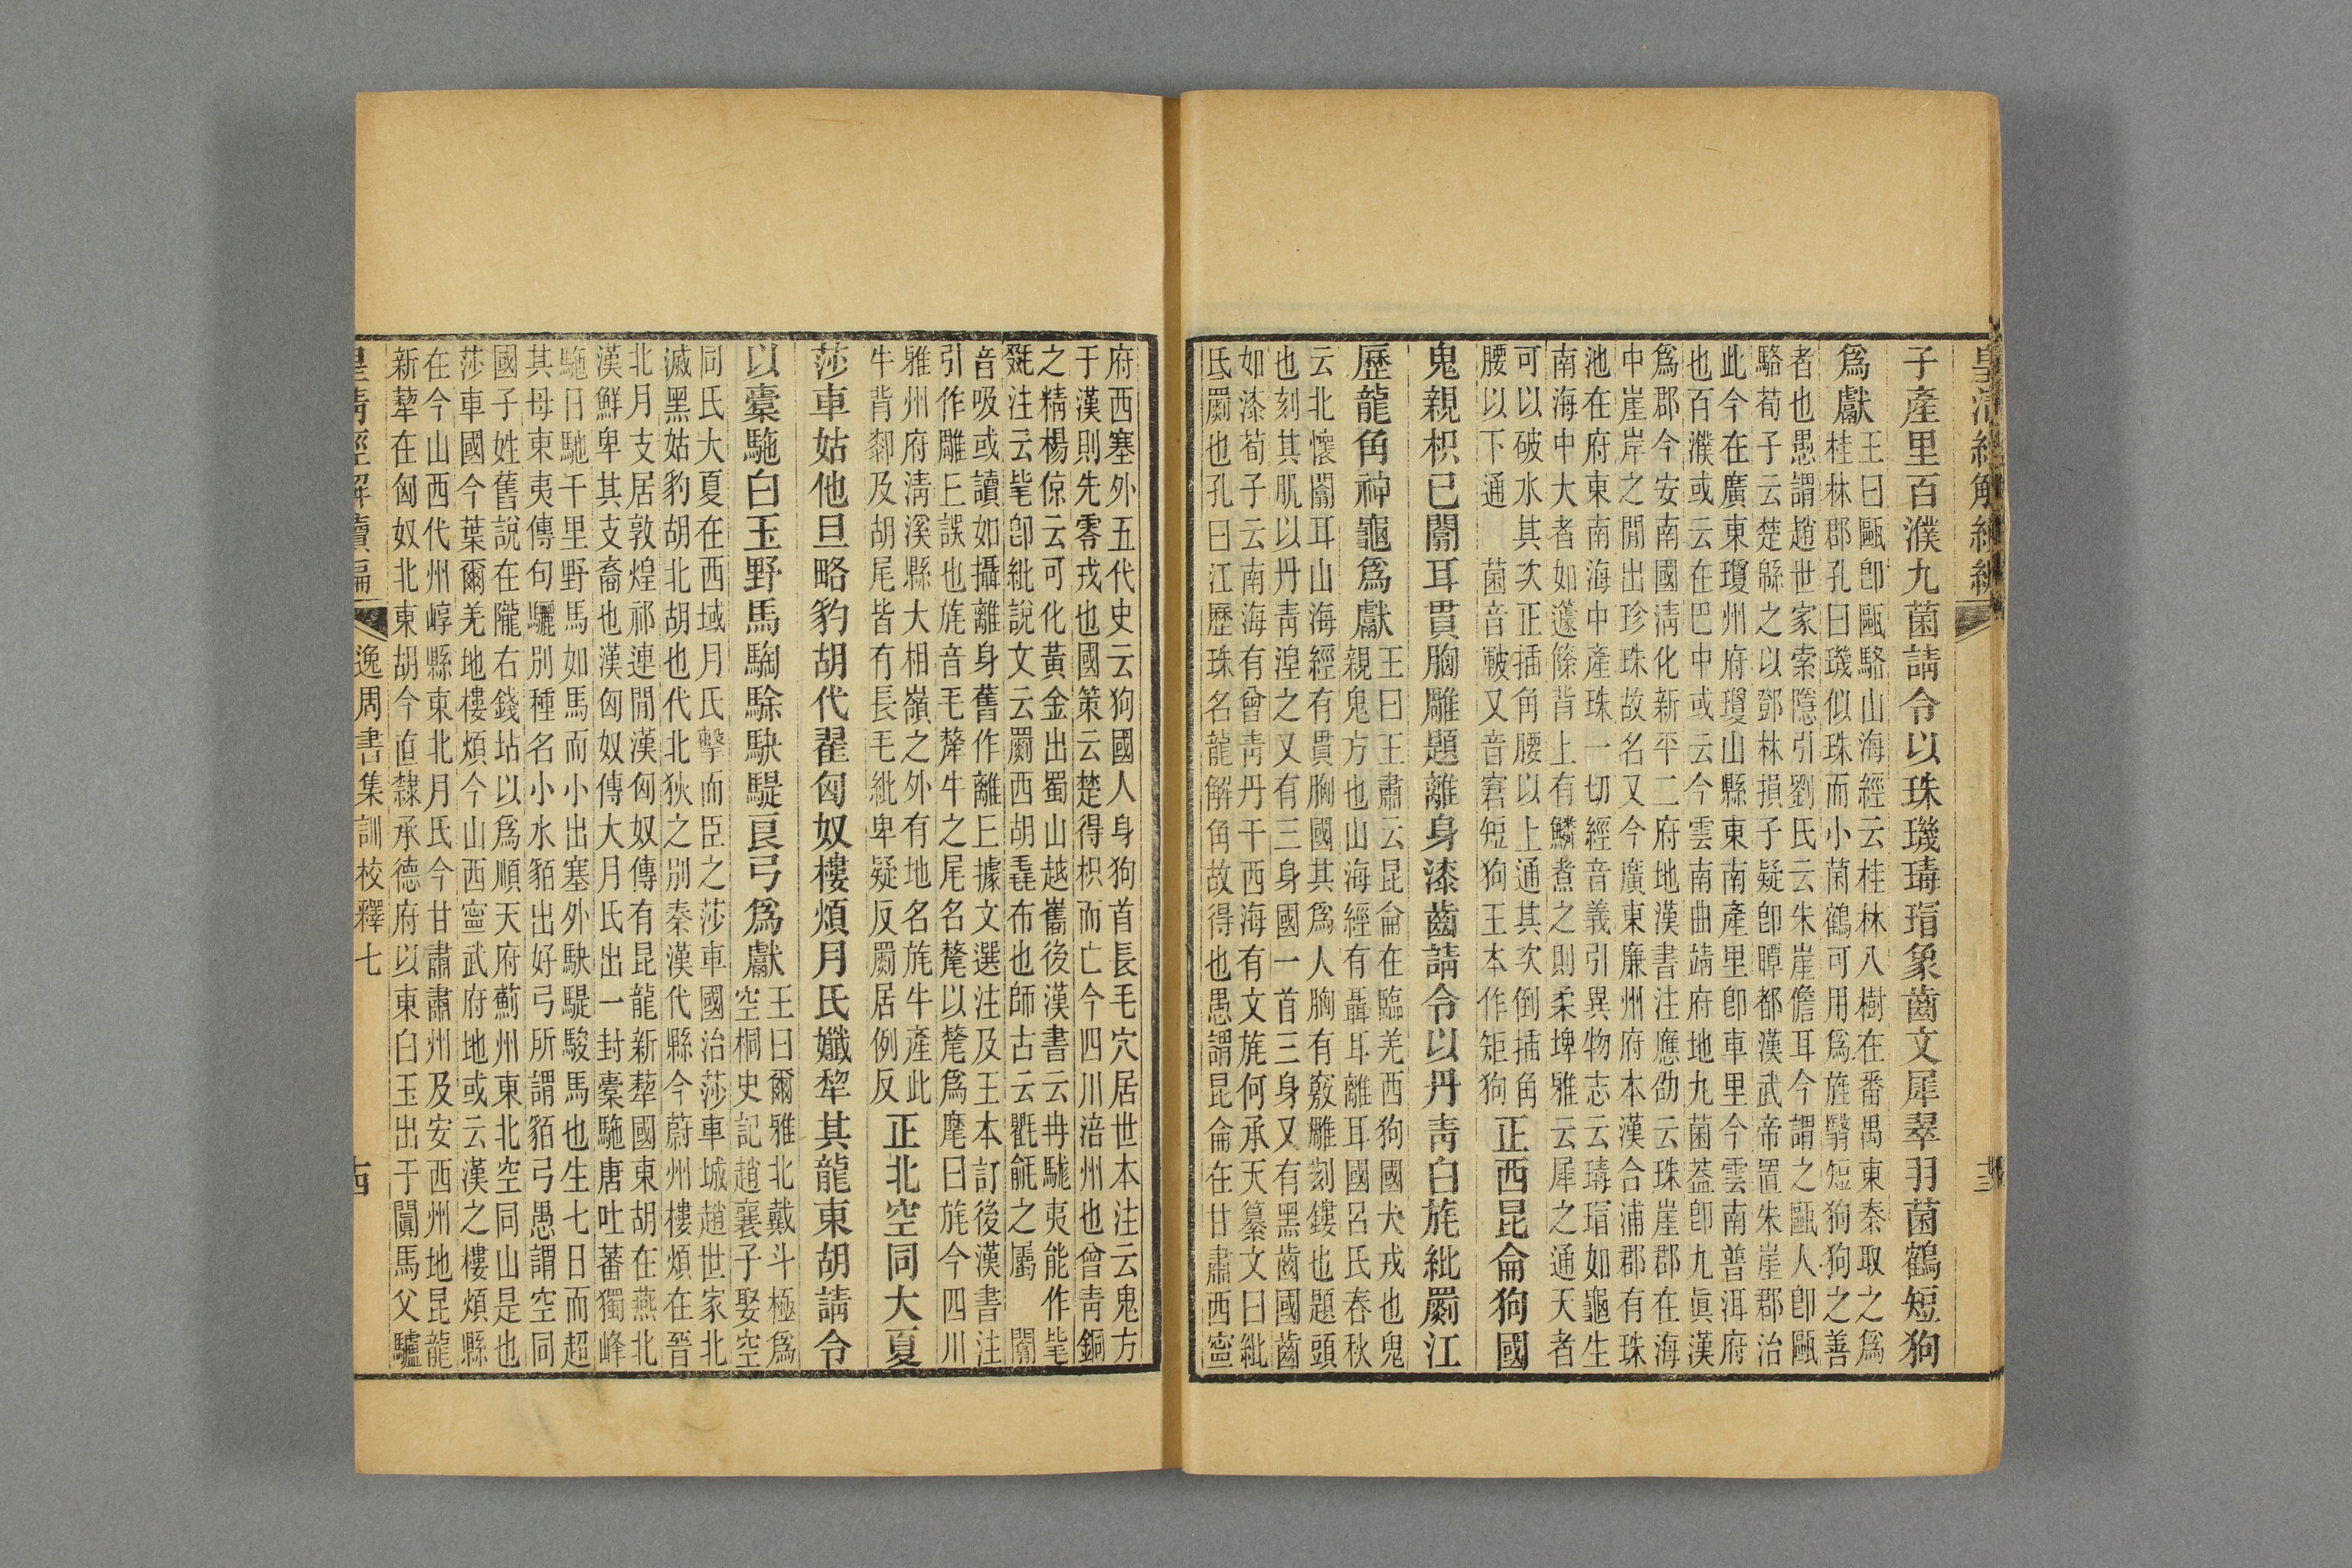 皇清經解續編
子產里百濮九菌請令以珠璣瑇瑁象齒文犀翠羽菌鶴短狗
爲獻
王曰甌卽甌駱山海經云桂林八樹在番禺東秦取之爲
桂林郡孔曰璣似珠而小菌鶴可用爲旌翳短狗狗之善
者也愚謂趙世家索隱引劉氏云朱崖儋耳今謂之甌人卽甌
駱荀子云楚緜之以鄧林損子疑卽瞫都漢武帝置朱崖郡治
此今在廣東瓊州府瓊山縣東南產里卽車里今雲南普洱府
也百濮或云在巴中或云今雲南曲靖府地九菌葢卽九眞漢
爲郡今安南國淸化新平二府地漢書注應劭云珠崖郡在海
中崖岸之閒出珍珠故名又今廣東廉州府本漢合浦郡有珠
池在府東南海中產珠一切經音義引異物志云瑇瑁如龜生
南海中大者如蘧篨背上有鱗煮之則柔埤雅云犀之通天者
可以破水其次正插角腰以上通其次倒插角
腰以下通 菌音窘短狗王本作矩狗
正西昆侖狗國
鬼親枳已闟耳貫胸雕題離身漆齒請令以丹青白旄紕罽江
歷龍角神龜爲獻
王曰王肅云昆侖在臨羌西狗國犬戎也鬼
親鬼方也山海經有聶耳離耳國呂氏春秋
云北懷闟耳山海經有貫胸國其爲人胸有竅雕刻鏤也題頭
也刻其肌以丹青湼之又有三身國一首三身又有黑齒國齒
如漆荀子云南海有曾青丹干西海有文旄何承天纂文曰紕
氐罽也孔曰江歷珠名龍解角故得也愚謂昆侖在甘肅西寧
府西塞外五代史云狗國人身狗首長毛穴居世本注云鬼方
于漢則先零戎也國策云楚得枳而亡今四川涪州也曾青銅
之精楊倞云可化黃金出蜀山越巂後漢書云冉駹夷能作毞
毲注云毞卽紕說文云罽西胡毳布也師古云氍毹之屬 闟
音吸或讀如攝離身舊作離𠀇據文選注及王本訂後漢書注
引作雕𠀇誤也旄音毛犛牛之尾名氂以氂爲麾曰旄今四川
雅州府清溪縣大相嶺之外有地名旄牛產此
牛背㔟及胡尾皆有長毛紕卑疑反罽居例反
正北空同大夏
莎車姑他旦略豹胡代翟匈奴樓煩月氏孅犂其龍東胡請令
以橐駞白玉野馬騊駼駃騠良弓爲獻
王曰爾雅北戴斗極爲
空桐史記趙襄子娶空
同氏大夏在西域月氏擊而臣之莎車國治莎車城趙世家北
滅黑姑豹胡北胡也代北狄之別秦漢代縣今蔚州樓煩在晉
北月支居敦煌祁連閒漢匈奴傳有昆龍新犂國東胡在燕北
漢鮮卑其支裔也漢匈奴傳大月氏出一封橐駞唐吐蕃獨峰
駞日馳千里野馬如馬而小出塞外駃騠駿馬也生七日而超
其母東夷傳句驪別種名小水貊出好弓所謂貊弓愚謂空同
國子姓舊說在隴右錢坫以爲順天府薊州東北空同山是也
莎車國今葉爾羌地樓煩今山西寧武府地或云漢之樓煩縣
在今山西代州崞縣東北月氏今甘肅肅州及安西州地昆龍
新犂在匈奴北東胡今直隸承德府以東白玉出于闐馬父驢
皇清經解續編 逸周書集訓校釋七